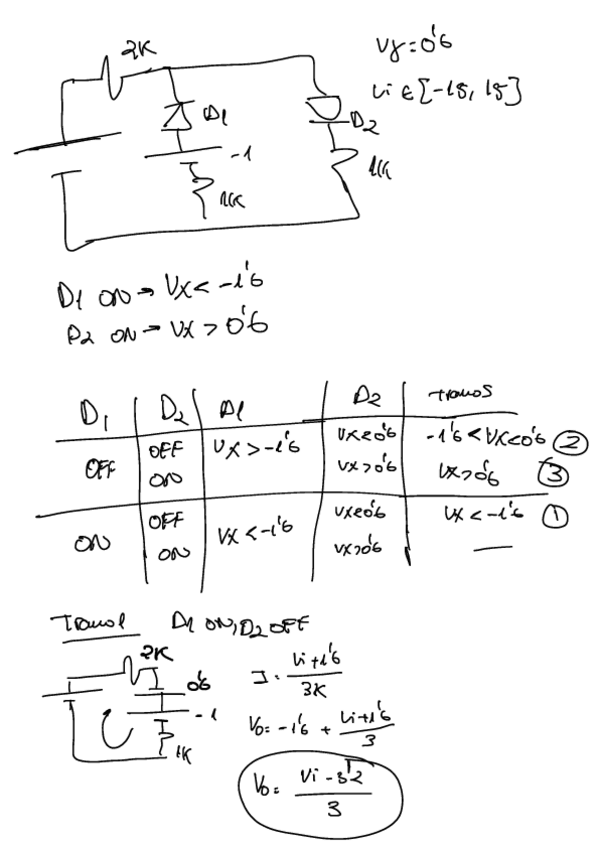 2K
Vγ = 0'6
D1
Vi ∈ [-15, 15]
D2
-1
1K
1K
D1 ON → Vx < -1'6
D2 ON → Vx > 0'6
D1 D2 D1 D2 tramos
OFF OFF Vx > -1'6 Vx < 0'6 -1'6 < Vx < 0'6 ②
ON Vx > 0'6 Vx > 0'6 ③
ON OFF Vx < -1'6 Vx < 0'6 Vx < -1'6 ①
ON Vx > 0'6 —
Tramo 1 D1 ON, D2 OFF
2K
0'6
-1
1K
I = Vi + 1'6 / 3K
Vo = -1'6 + Vi + 1'6 / 3
Vo = Vi - 3'2 / 3